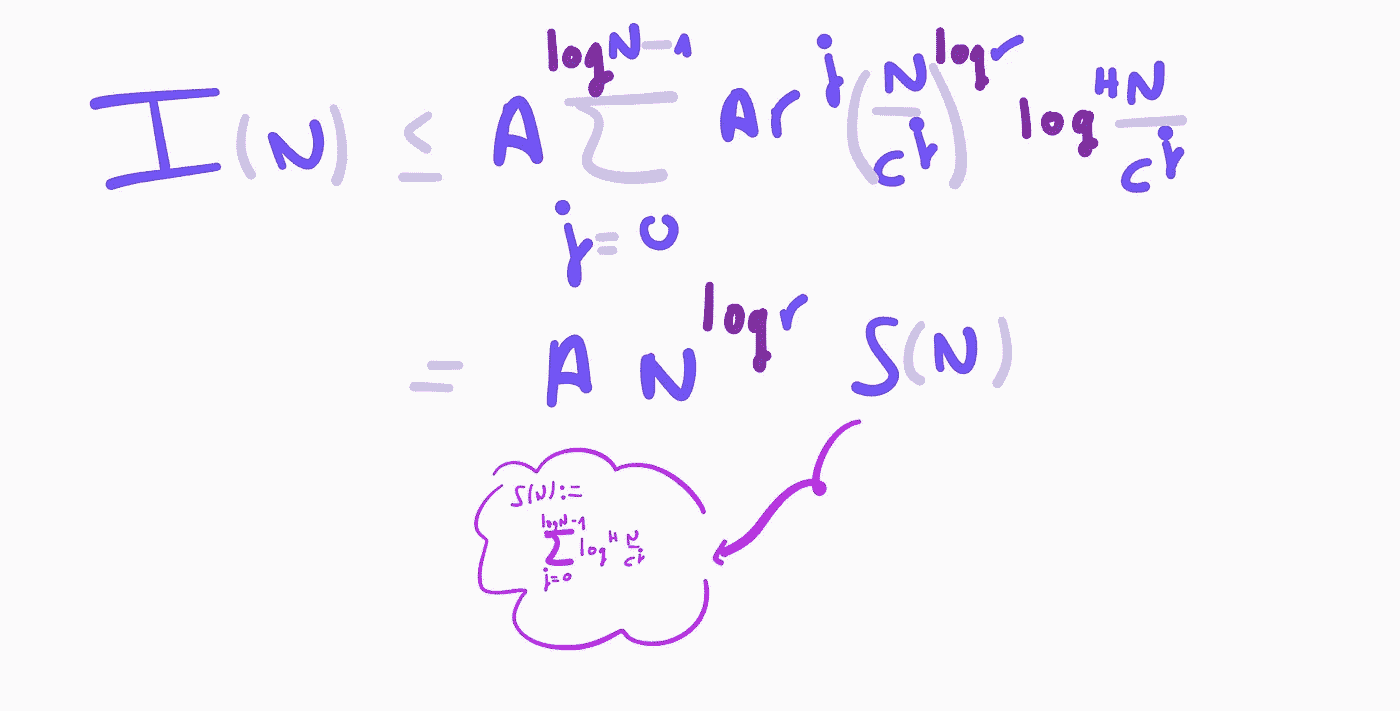 I(N) ≤ A ∑_{j=0}^{log N-1} A r^j (N/c^j)^{log r} log^H N/c^j
= A N^{log r} S(N)
S(N) :=
∑_{j=0}^{log N-1} log^H N/c^j